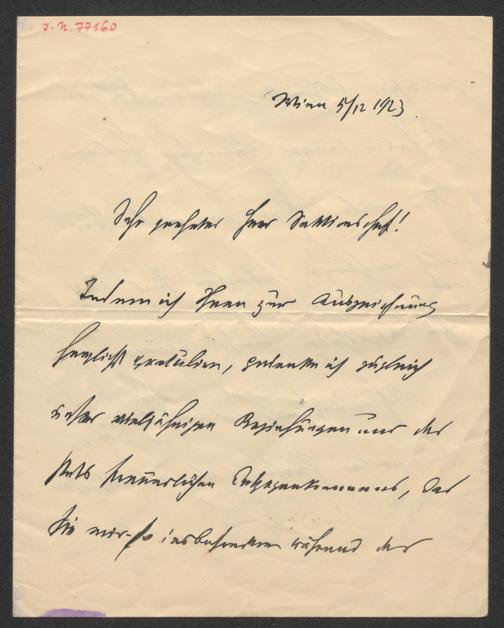 J. N. 77160
Wien 5/12 1923.
Sehr geehrter Herr Sektionschef!
Indem ich Ihnen zur Auszeichnung
herzlichst gratuliere, gedenke ich zugleich
unser vieljährigen Beziehungen und des
stets freundlichen Entgegenkommens, das
Sie mir so insbesondere während der